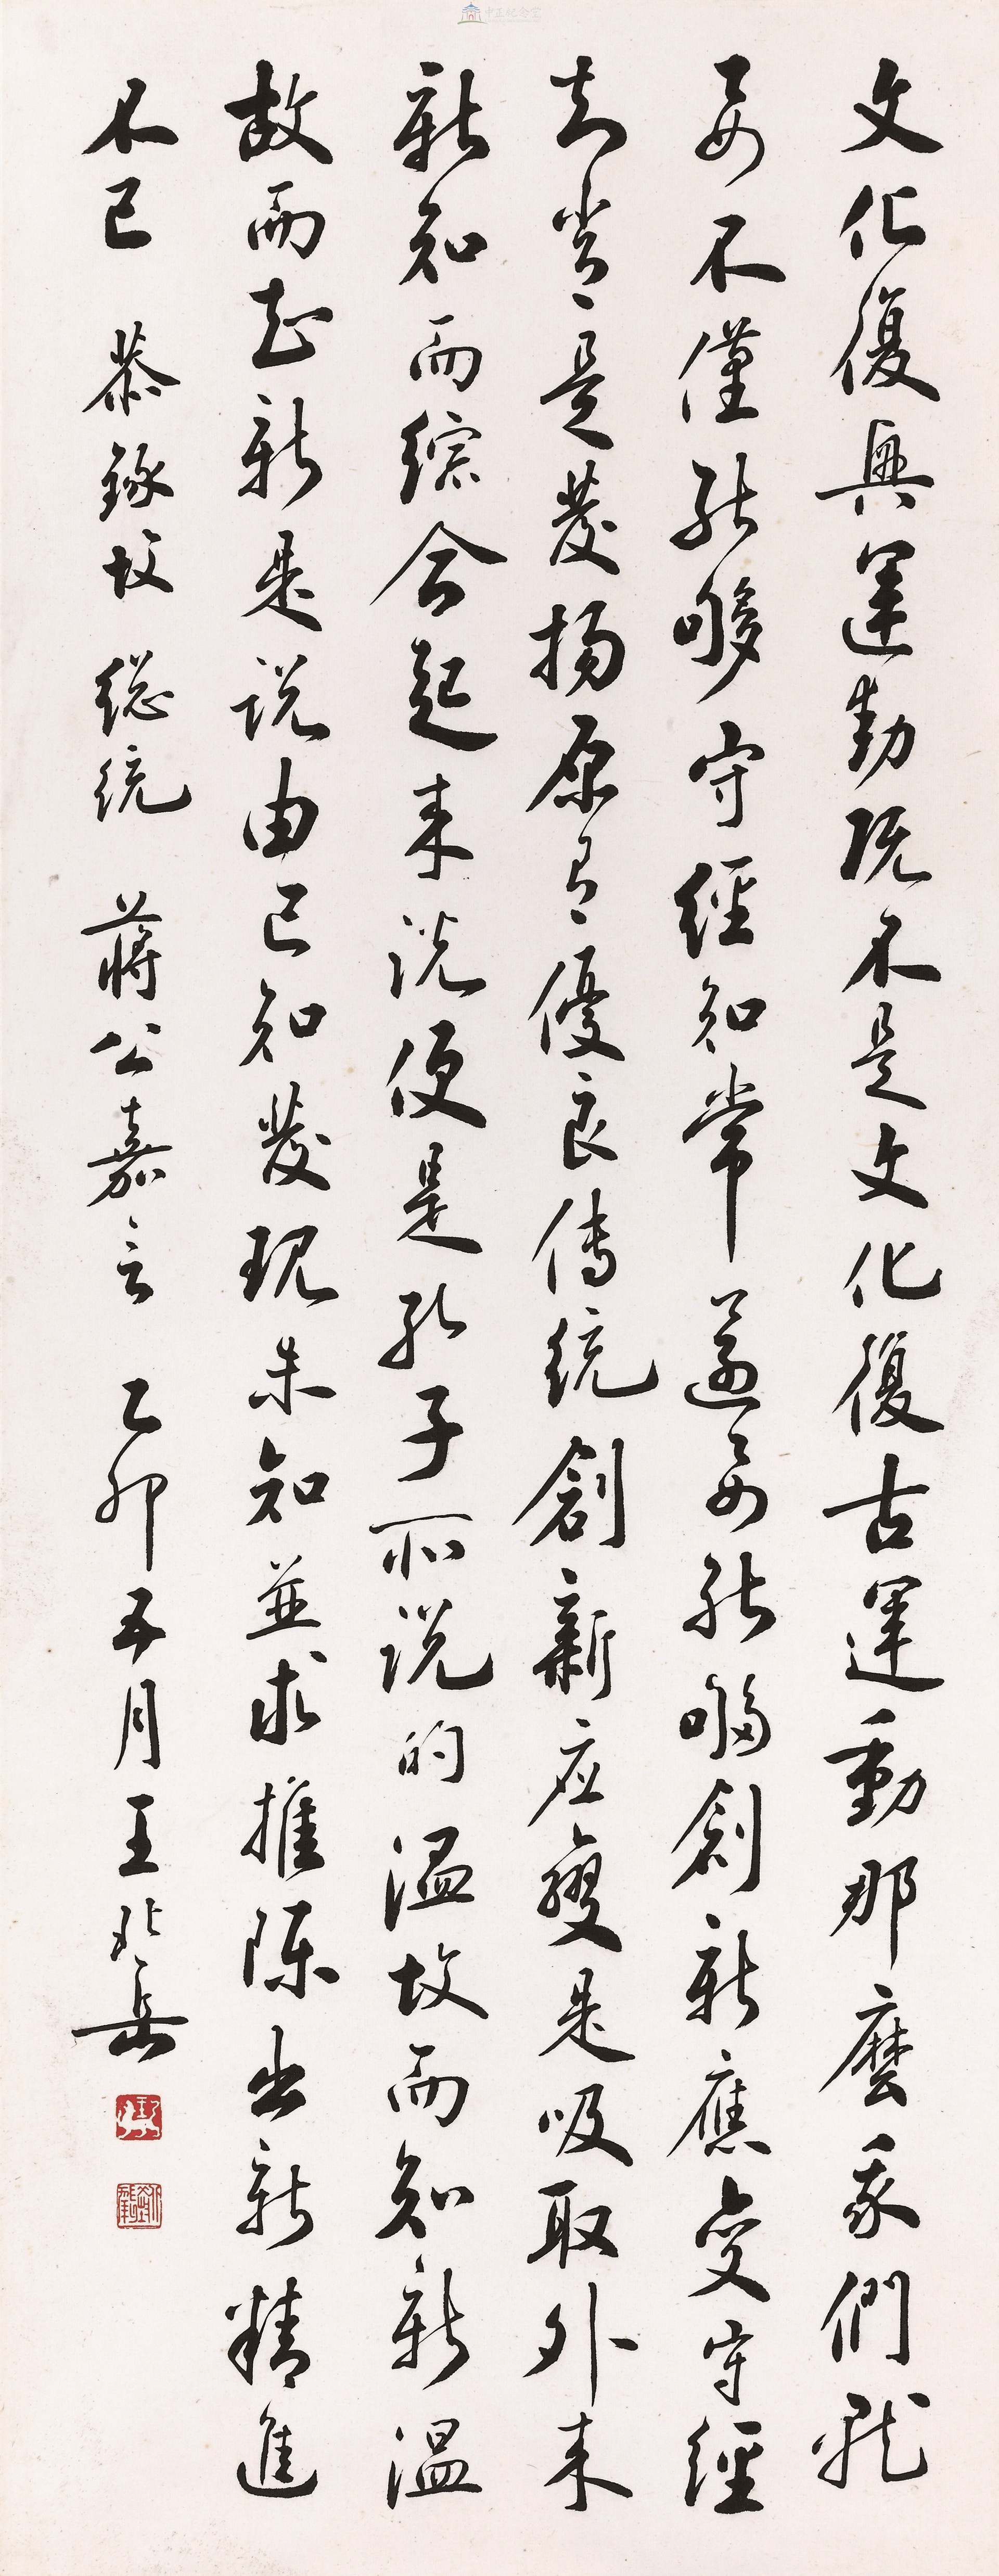 中正紀念堂
文化復興運動既不是文化復古運動那麼我們就
要不僅能夠守經知常還要能夠創新應變守經
知常是發揚原有優良傳統創新应變是吸取外來
新知而綜合起來說便是孔子所說的溫故而知新溫
故而知新是說由已知發現未知並求推陳出新精進
不已 恭錄故 總統 蔣公嘉言 乙卯五月王北岳